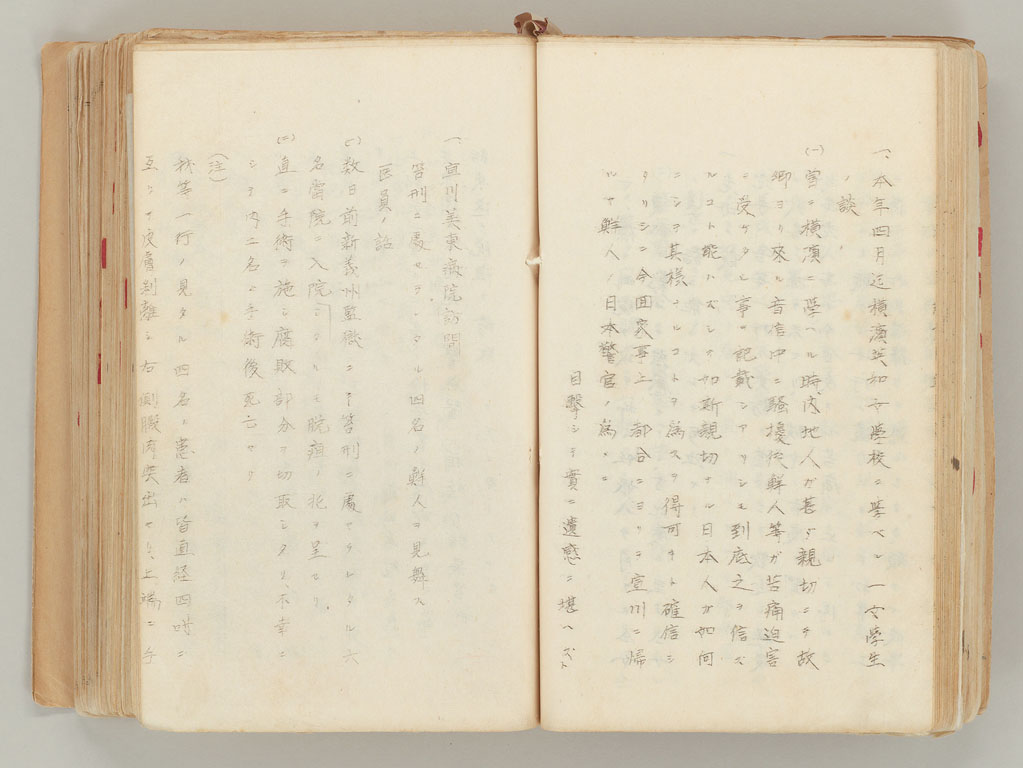 一、本年四月迄横濱共和女學校ニ学ベル一女學生
ノ談、
(一)曽テ横濱ニ學ヘル時、内地人ガ甚ダ親切ニシテ故
郷ヨリ來ル音信中ニ騒擾後鮮人等ガ苦痛迫害
ヲ受ケタル事ヲ記載シアリシモ到底之ヲ信ズ
ルコト能ハズシテカ切斯親切ナル日本人ガ如何
ニシテ其様ナルコトヲ為スヲ得可キト確信シ
タリシニ今回家事上ノ都合ニヨリテ宣川ニ帰
ルヤ鮮人ノ日本警官ノ為メニ
目撃シテ實ニ遺憾ニ堪ヘズト
一、宣川美東病院訪問
笞刑ニ處セラレタル四名ノ鮮人ヲ見舞ス
医員ノ話
(一)数日前新義州監獄ニテ笞刑ニ處セラレタル六
名當院ニ入院シタルモ脱疽ノ状ヲ呈セリ、
(二)直ニ手術ヲ施シ腐敗部分ヲ切取シタリ、不幸ニ
シテ内二名ハ手術後死亡セリ
(注)
我等一行ノ見タル四名ノ患者ハ皆直経四吋ニ
互リテ皮膚剥離シ右側臀肉突出セリ、上端ニ手